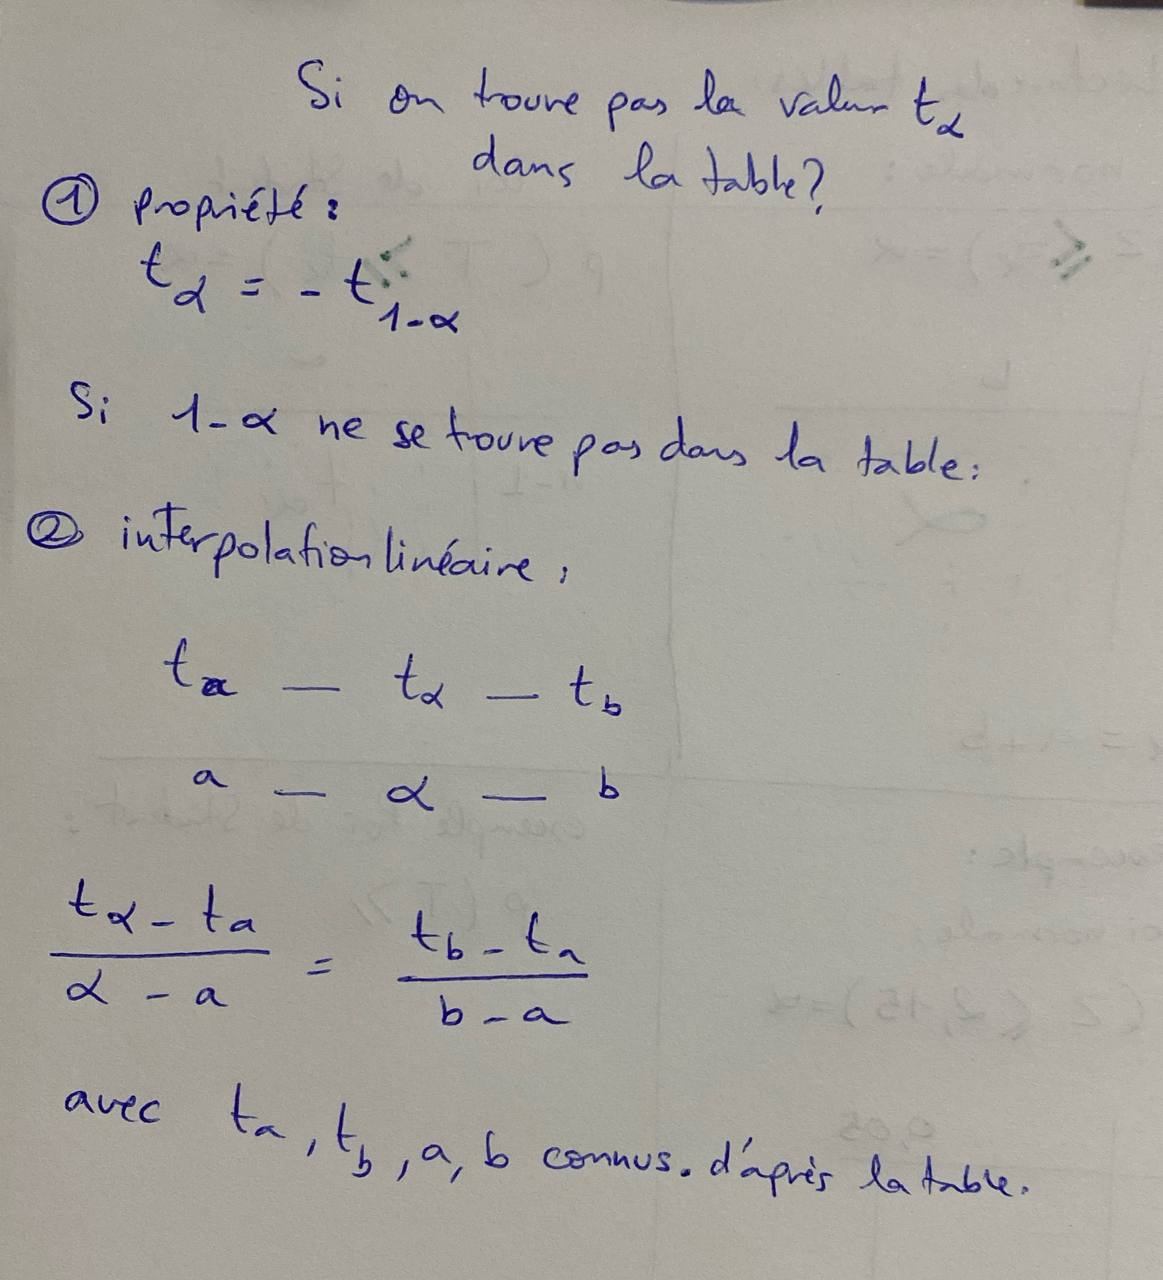 Si on trouve pas la valeur tα
dans la table?
① propriété :
tα = - t1-α
Si 1-α ne se trouve pas dans la table :
② interpolation linéaire :
ta — tα — tb
a — α — b
tα - ta / α - a = tb - ta / b - a
avec ta, tb, a, b connus. d'après la table.